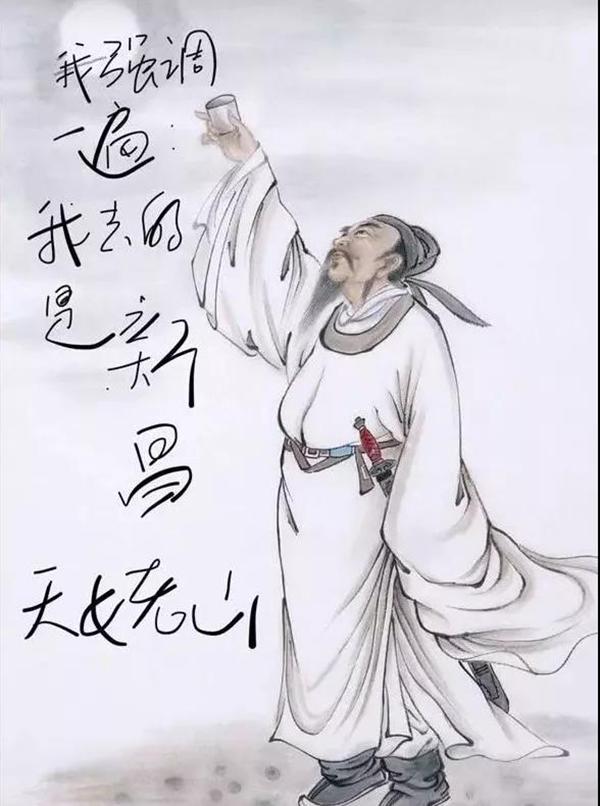 我强调
一遍:
我去的
是新
昌
天姥山